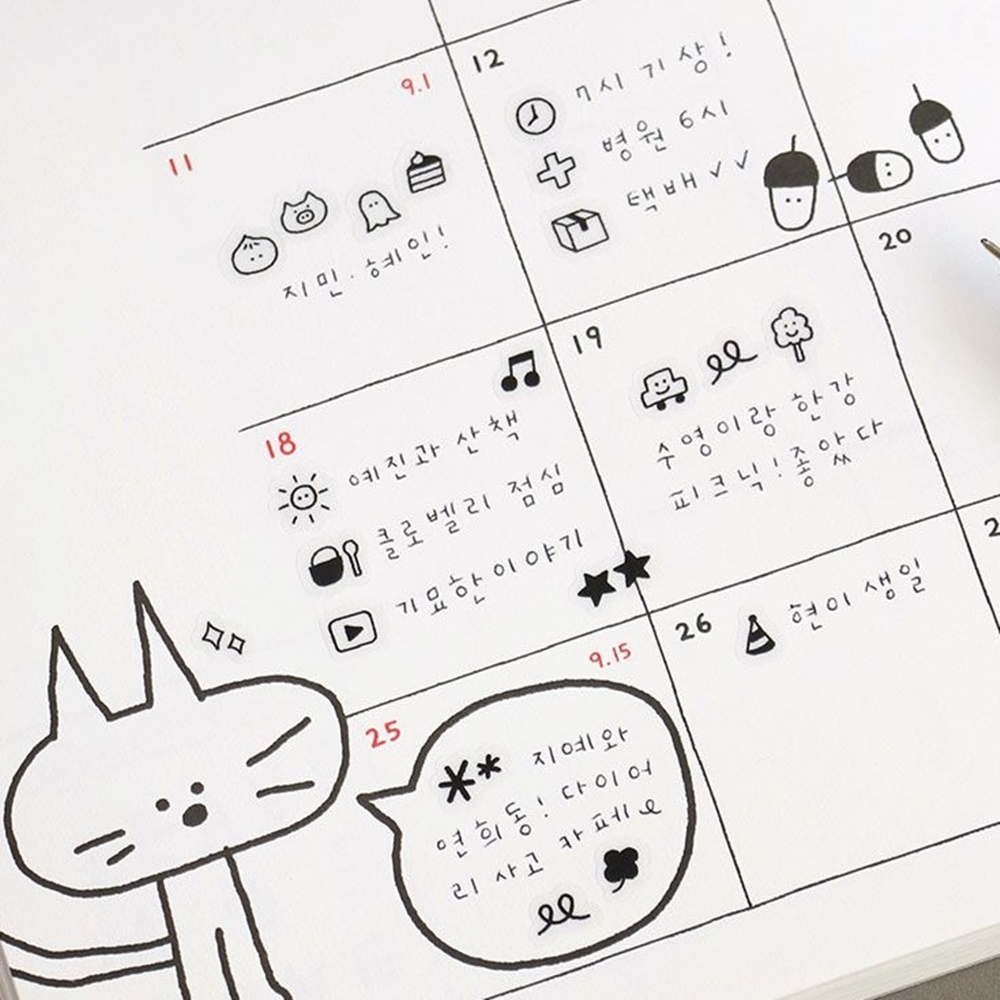 9.1
11
지민·혜인!
12
7시 기상!
병원 6시
택배 ✓✓
18
예진과 산책
클로벨리 점심
기묘한이야기
19
수영이랑 한강
피크닉! 좋았다
20
9.15
25
지예와
연희동! 다이어
리 사고 카페
26
현이 생일
2